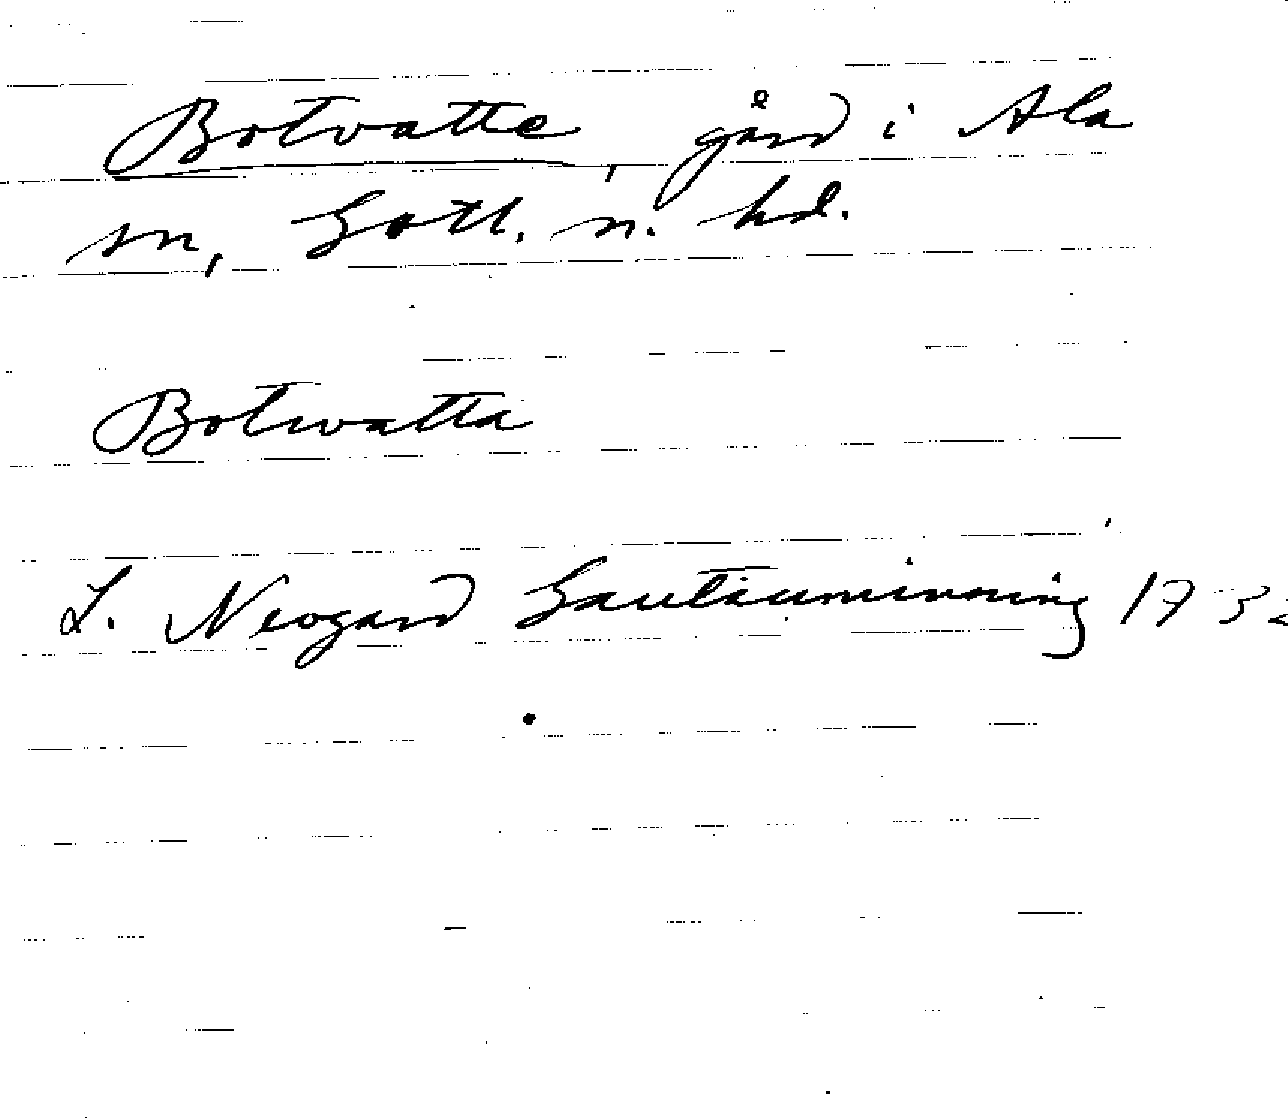 Botvatte, gård i Ala
sn, Gotl. n. hd.
Botwatta
L. Neogard Gautauminning 1732